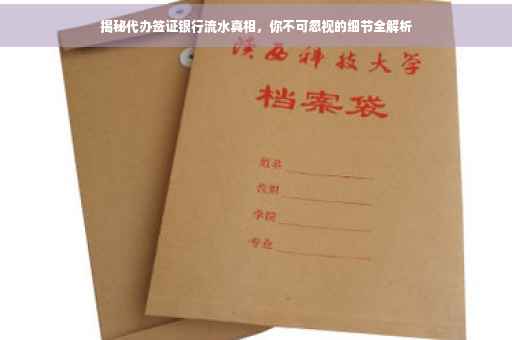 揭秘代办签证银行流水真相，你不可忽视的细节全解析
陕西科技大学
档案袋
姓名
班级
学院
专业